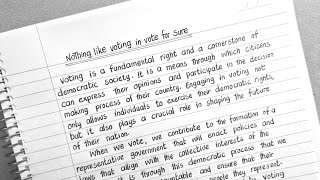 Nothing like voting in vote for sure
Voting is a fundamental right and a cornerstone of
democratic society. It is a means through which citizens
can express their opinions and participate in the decision
making process of their country. Engaging in voting not
only allows individuals to exercise their democratic rights,
but it also plays a crucial role in shaping the future
of their nation.
When we vote, we contribute to the formation of a
representative government that will enact policies and
laws that align with the collective interests of the
is through this democratic process that we
countable and ensure that their
people they represent.
voting